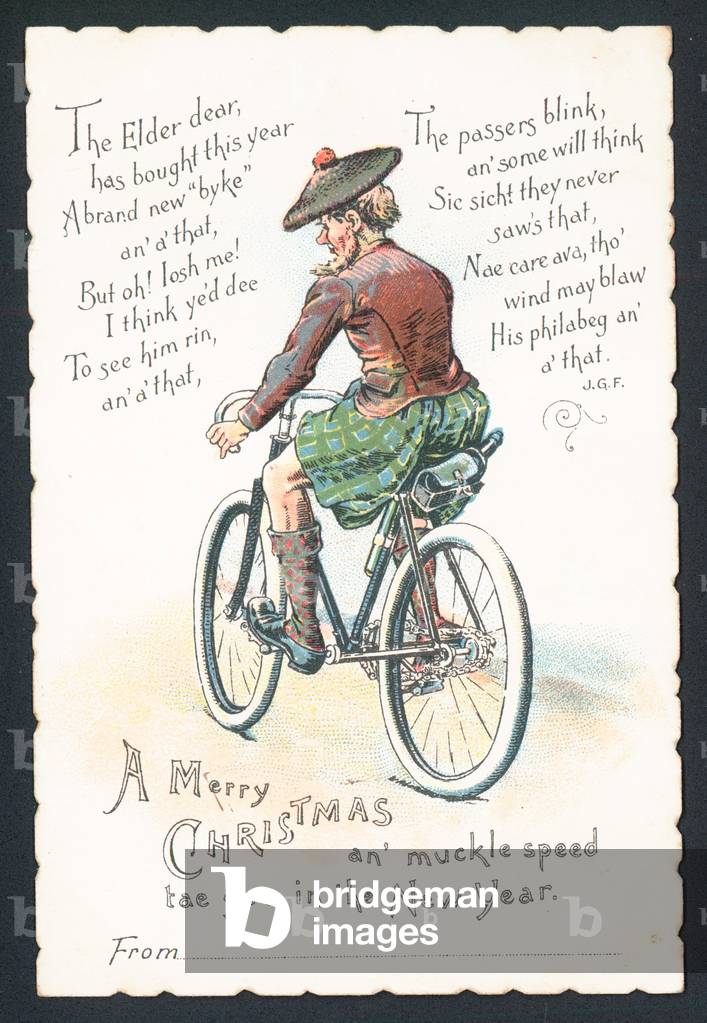 The Elder dear,
has bought this year
A brand new "byke"
an' a' that,
But oh! losh me!
I think ye'd dee
To see him rin,
an' a' that,
The passers blink,
an' some will think
Sic sicht they never
saw's that,
Nae care ava, tho'
wind may blaw
His philabeg an'
a' that.
J.G.F.
A Merry
CHRISTMAS
an' muckle speed
tae in the New Year.
From
b bridgeman
images